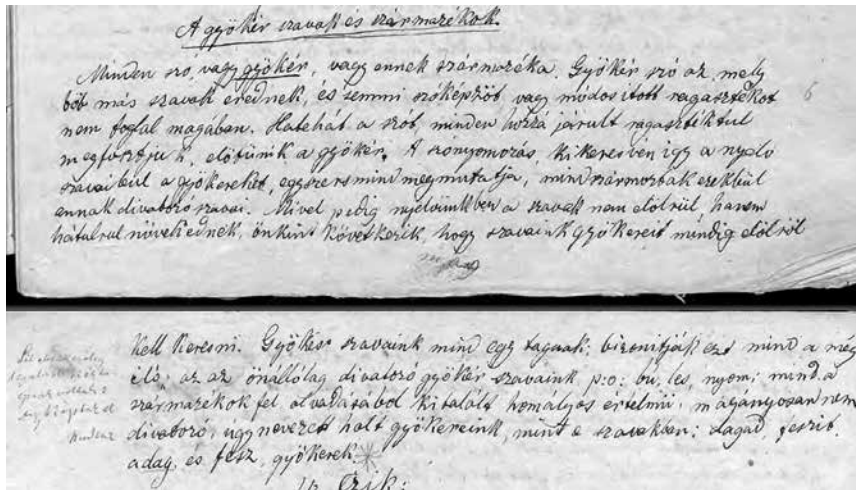 A gyökér szavak és származékok.
Minden szó, vagy gyökér, vagy ennek származéka. Gyökér szó az, mely
ből más szavak erednek, és semmi szóképzőt vagy módosított ragasztékot
nem foglal magában. Ha tehát a szót, minden hozzá járult ragasztéktul
megfosztjuk, előtűnik a gyökér. A szónyomozás, kikeresvén így a nyelv
szavaibul a gyökereket, egyszersmind megmutatja, mind származtak ezekbül
annak divatozó szavai. Mivel pedig nyelvünkben a szavak nem elölrül, hanem
hátulrul növekednek, önkint következik, hogy szavaink gyökereit mindig elölröl
kell keresni. Gyökér szavaink mind egy taguak: bizonitják ezt mind a még
élő: az az önállólag divatozó gyökér szavaink p:o: bú, les, nyom; mind a
származékok fel olvadásából kitalált homályos értelmü, magányosan nem
divatozó, ugy nevezett holt gyökereink, mint e szavakban: dagad, feszit,
a dag, és fesz, gyökerek
Czik: